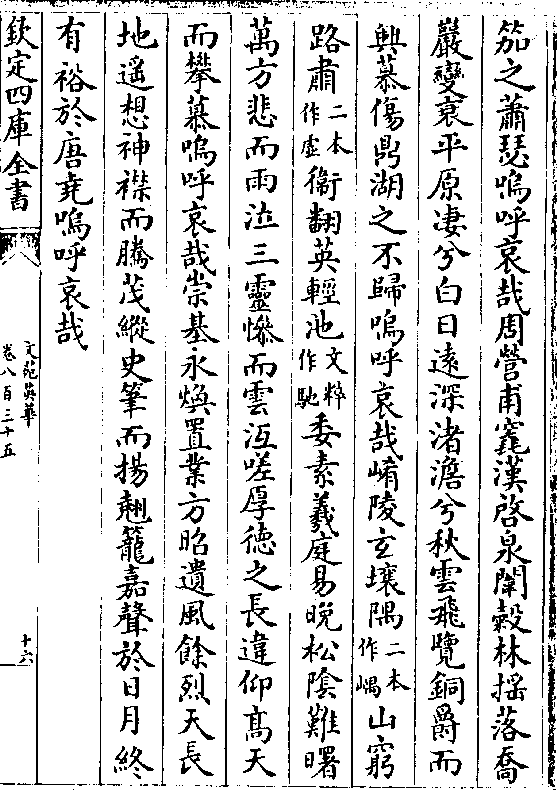 笳之蕭瑟嗚呼哀哉周營甫竁漢啓泉闈穀林揺落喬
巖變衰平原凄兮白日遠深渚澹兮秋雲飛覽銅爵而
興慕傷鼎湖之不歸嗚呼哀哉崤陵玄壤隅二本作嵎山窮
路肅二本作虚衞翻英輕池文粹作馳委素羲庭易晚松隂難曙
萬方悲而雨泣三靈慘而雲沍嗟厚徳之長違仰髙天
而攀慕嗚呼哀哉崇基永煥置業方昭遺風餘烈天長
地遥想神襟而騰茂縱史筆而揚翹籠嘉聲於日月終
有裕於唐堯嗚呼哀哉
欽定四庫全書
文苑英華
卷八百三十五
十六